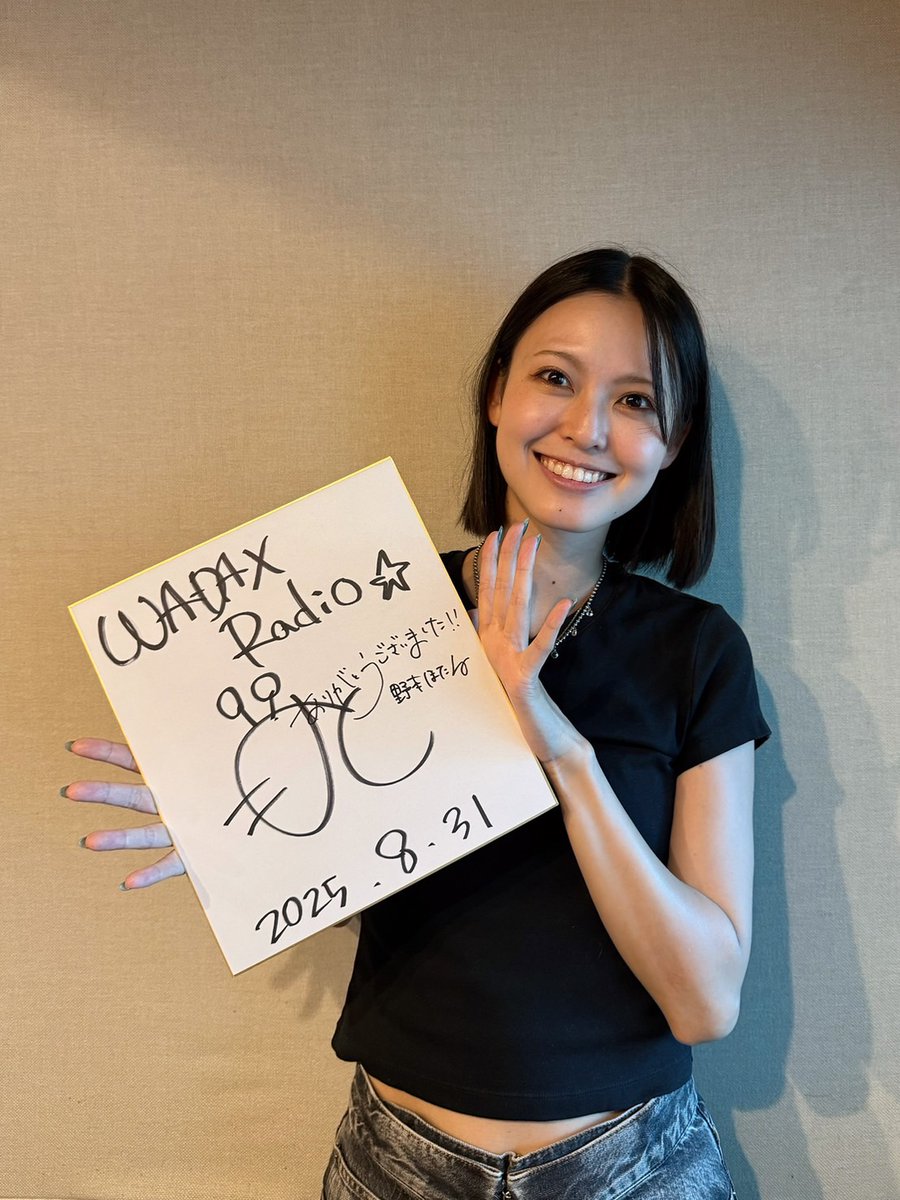 WADAX
Radio☆
ありがとうございました!!
野本ほたる
2025.8.31